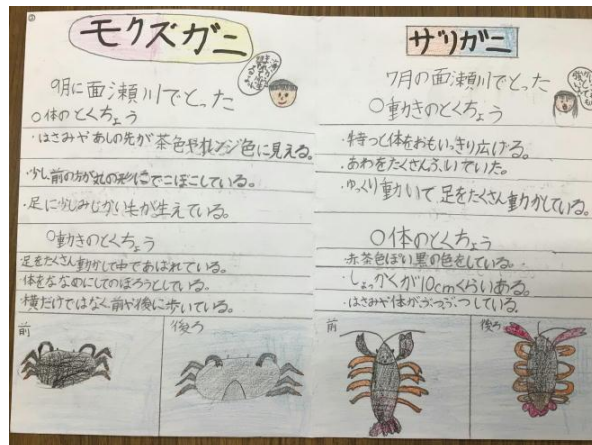 モクズガニ
9月に面瀬川でとった
○体のとくちょう
・はさみやあしの先が茶色やオレンジ色に見える。
・少し前の方がれの形にでこぼこしている。
・足に少しみじかい毛が生えている。
○動きのとくちょう
・足をたくさん動かして中であばれている。
・体をななめにしてのぼろうとしている。
・横だけではなく前や後に歩いている。
前
後ろ
ザリガニ
7月の面瀬川でとった
○動きのとくちょう
・持つと体をおもいっきり広げる。
・あわをたくさんふいていた。
・ゆっくり動いて、足をたくさん動かしている。
○体のとくちょう
・赤茶色ぽい黒の色をしている。
・しょっかくが10cmくらいある。
・はさみや体がぶつぶつしている。
前
後ろ